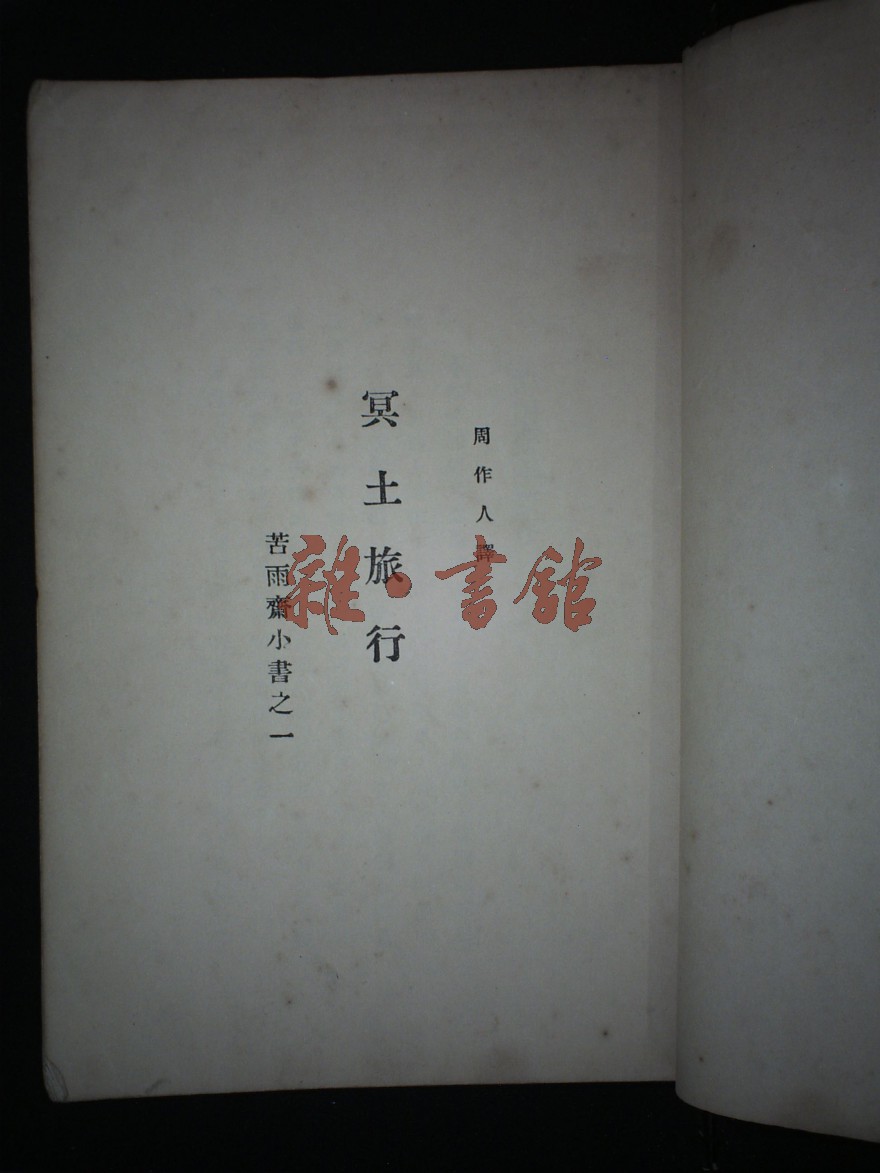 周作人譯
冥土旅行
苦雨齋小書之一
雜·書館